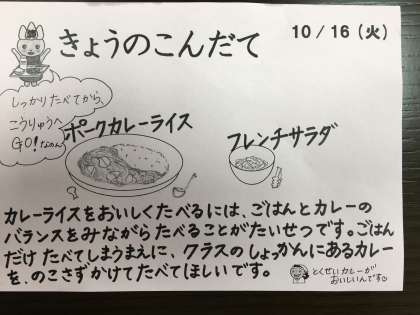 きょうのこんだて
10/16(火)
しっかりたべてから、
こうりゅうへ
GO!なのん
ポークカレーライス
フレンチサラダ
カレーライスをおいしくたべるには、ごはんとカレーの
バランスをみながらたべることがたいせつです。ごはん
だけたべてしまうまえに、クラスのしょっかんにあるカレー
を、のこさずかけてたべてほしいです。
とくせいカレーが
おいしいんです